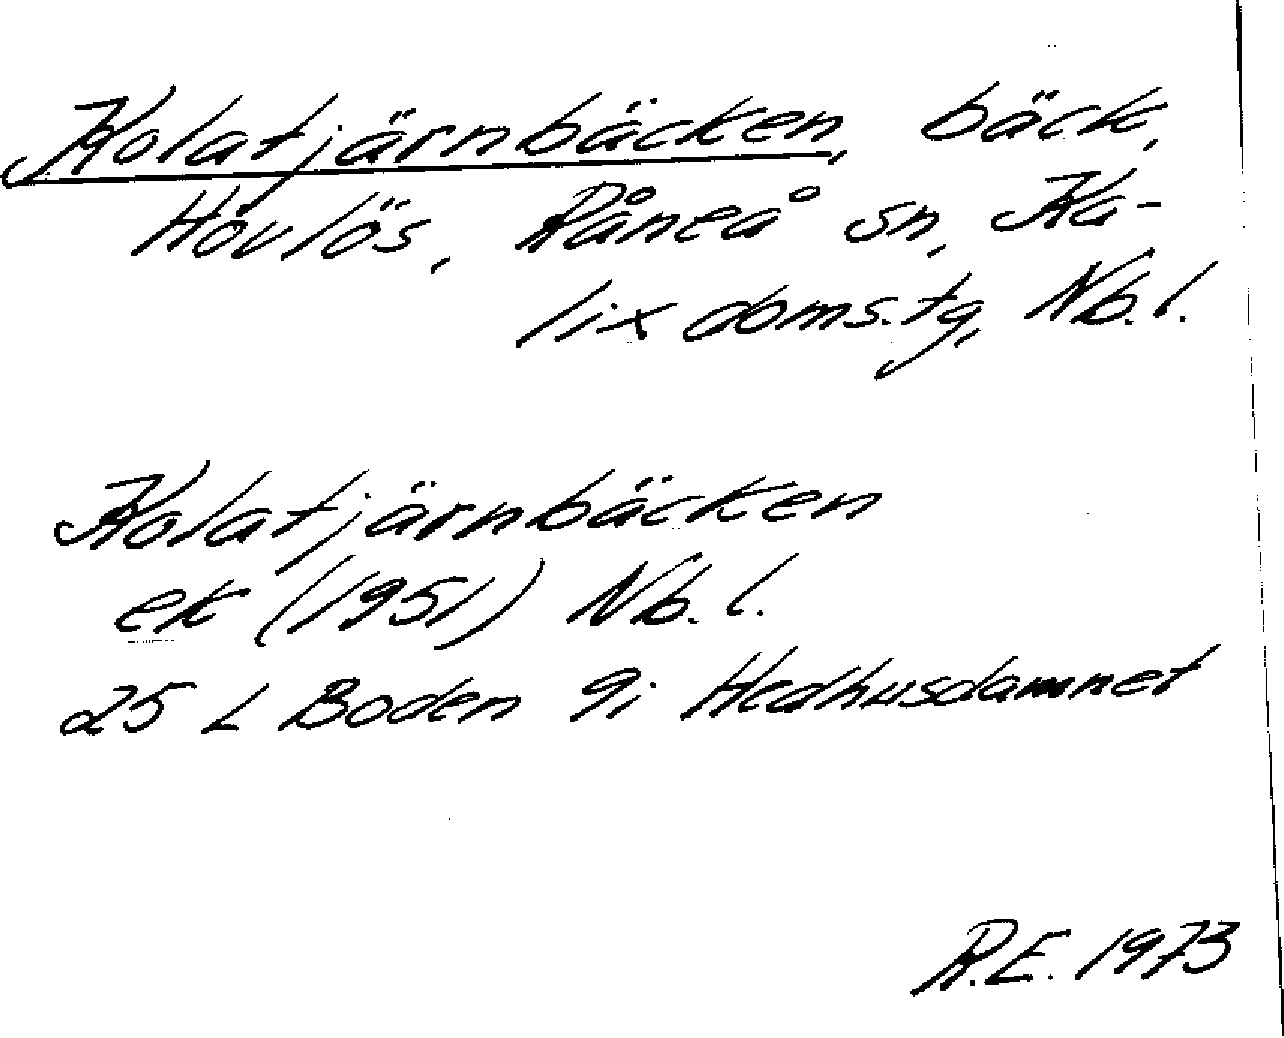 Kolatjärnbäcken, bäck,
Hövlös, Råneå sn, Ka-
lix doms.tg, Nb.l.
Kolatjärnbäcken
ek (1951) Nb.l.
25 L Boden 9i Hedhusdammet
R.E. 1973